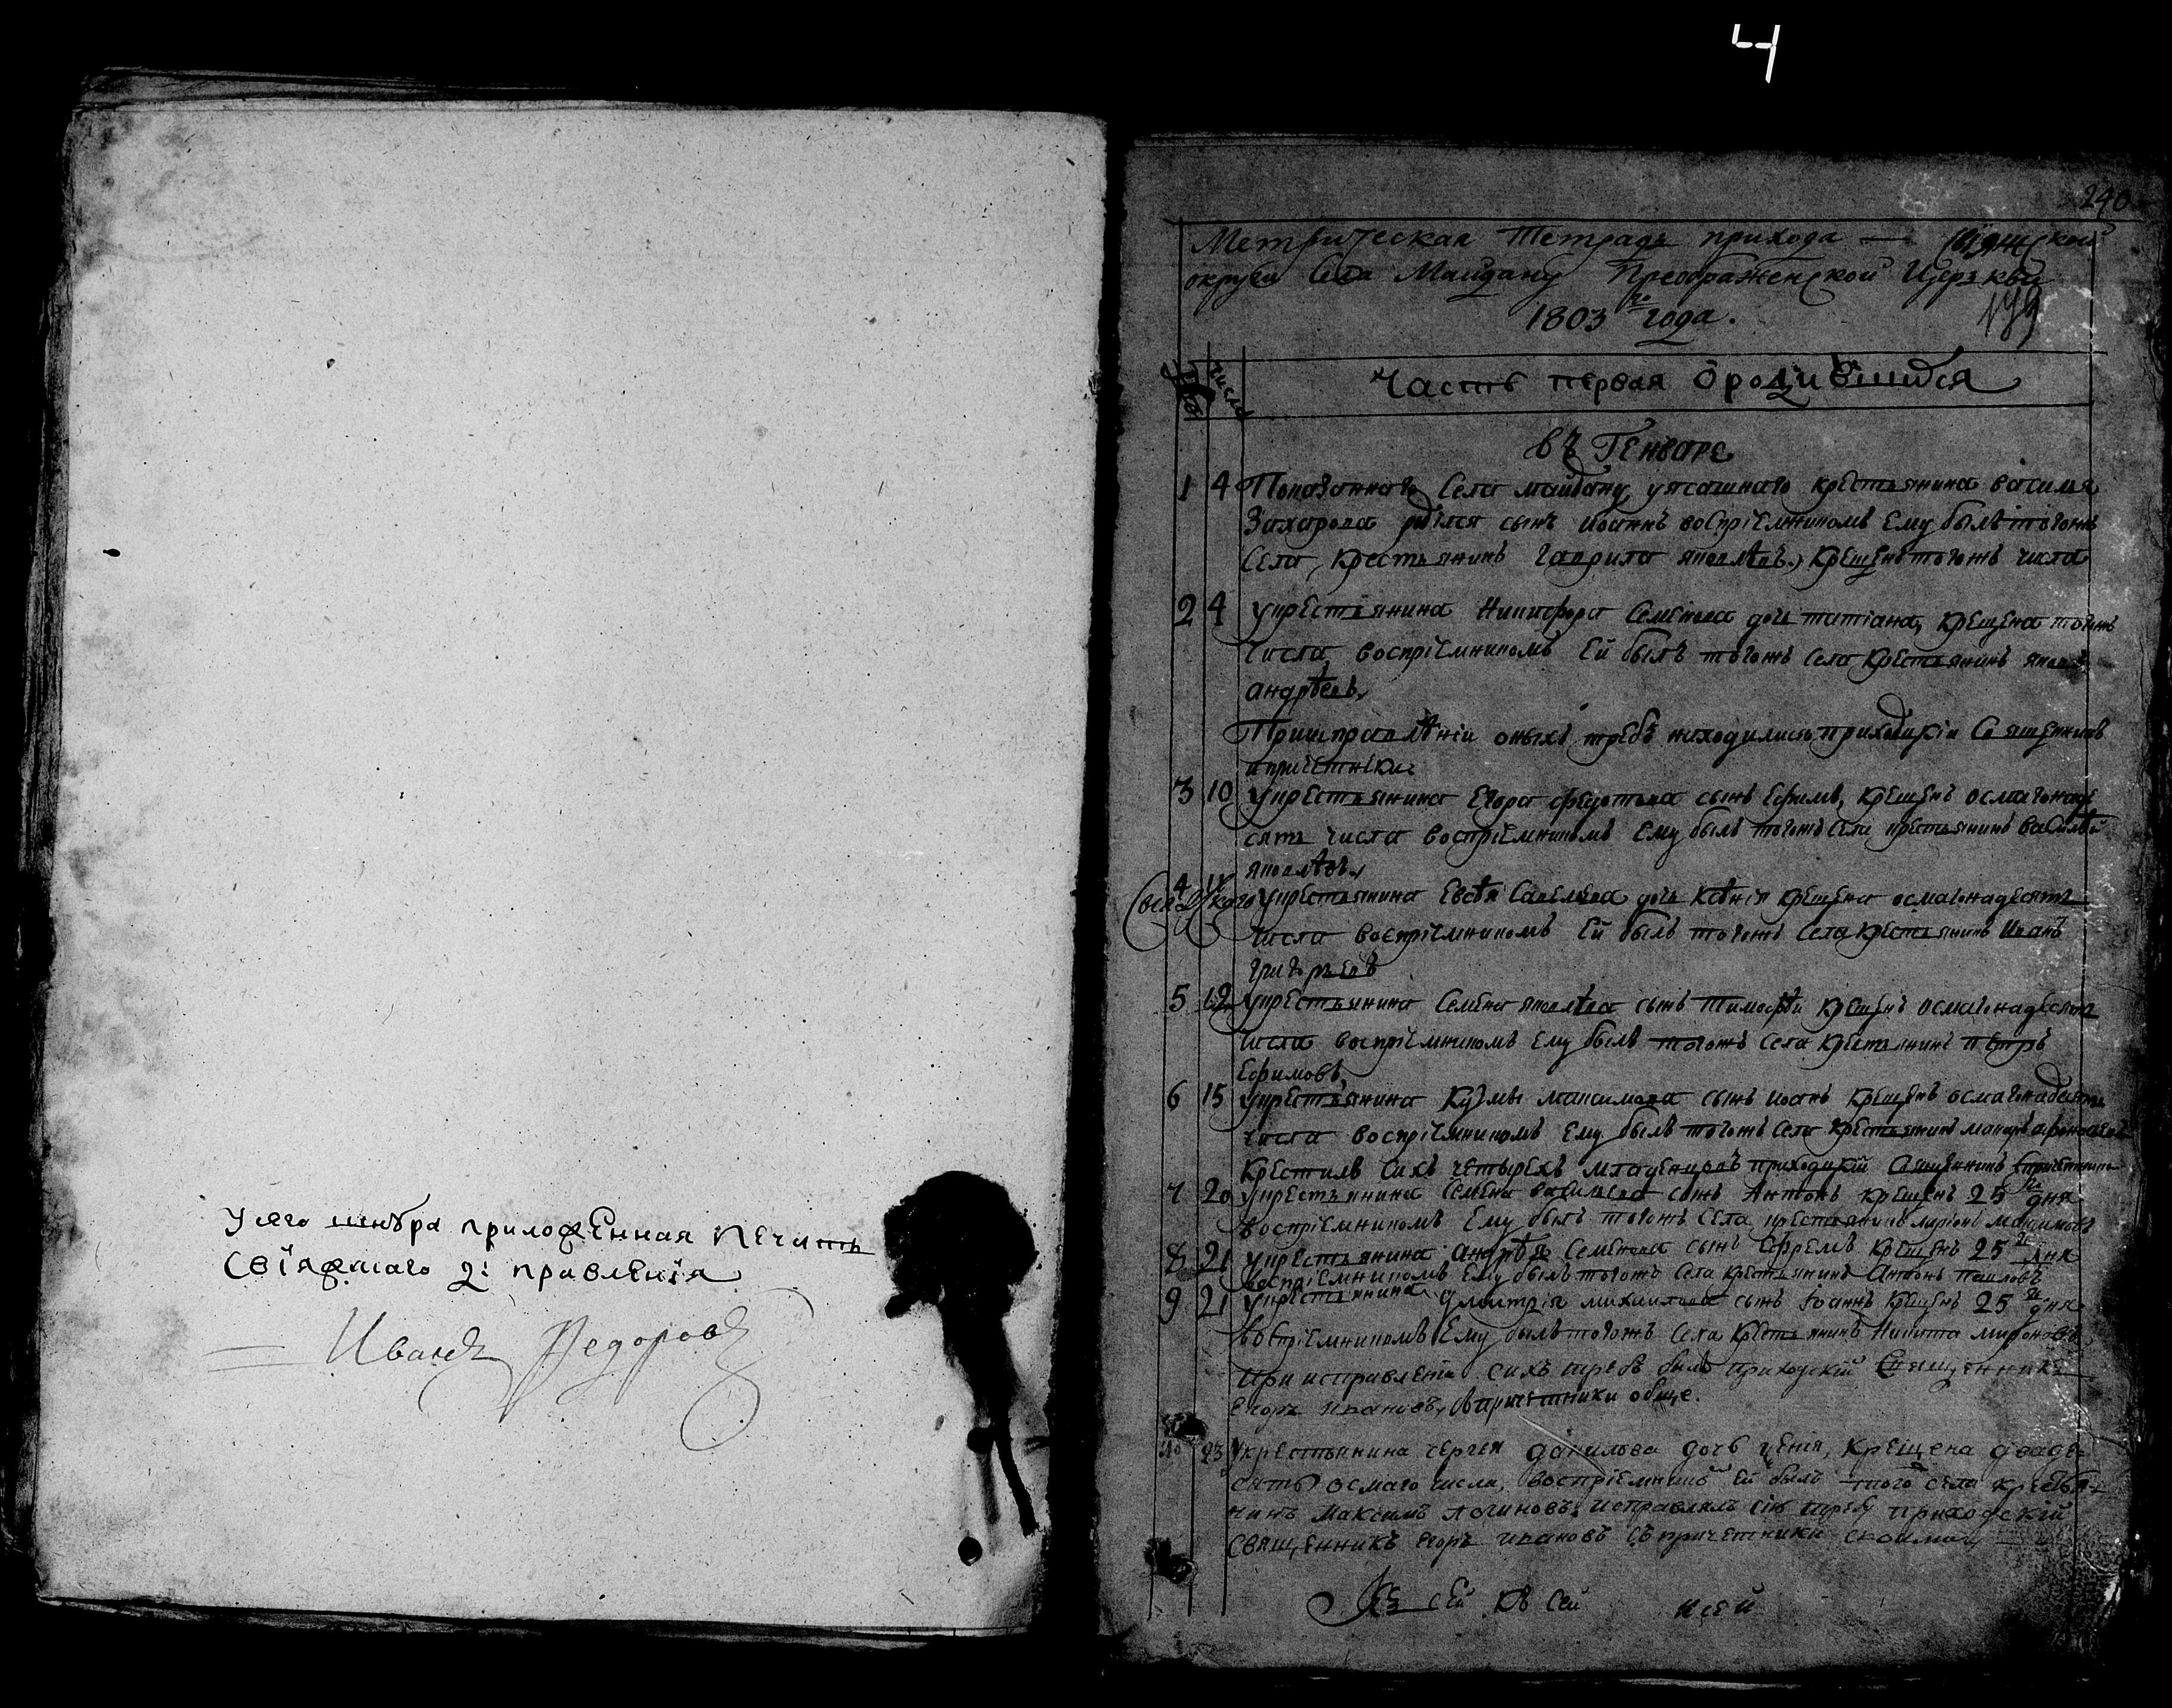 4
У сего шнура приложенная печать
Свіяжскаго д: правленія
Иванъ Федоровъ
240
Метрическая тетрадь прихода — Свіяжской
округи Села Маидану Преображенской Церькви
179
1803 го года.
число
Часть первая ородившихся
въ Генваре
1 4 Показаннаго Села маидану ясашнаго крестьянина василья
Захарова рдился сынъ иоаннъ воспріемникомъ Ему былъ тогожъ
Села, крестьянинъ гаврила яковлевъ, крещенъ тогожъ числа
2 4 укрестьянина Никифора Семенова дочь татіана, крещена тогожъ
числа, воспріемникомъ Ей былъ тогожъ Села крестьянинъ яковъ
андрѣевъ,
Приисправлѣніи оныхъ требъ находились приходскіи Священникъ
и причетники
3 10 укрестьянина Егора федотова сынъ Ефимъ, крещенъ осмагонаде
сять числа воспріемникомъ Ему былъ тогожъ Села крестьянинъ василѣй
яковлѣвъ,
4 11 укрестьянина Евсѣя Савельева дочь Ксѣнія крещена осмагонадесять
Свіяжскаго
числа воспріемникомъ Ей былъ тогожъ Села крестьянинъ Иванъ
григорьевъ
5 12 укрестьянина Семена яковлѣва сынъ тимофѣй крещенъ осмагонадесять
числа воспріемникомъ Ему былъ тогожъ Села крестьянинъ пѣтръ
Ефимовъ,
6 15 укрестьянина Кузмы максимова сынъ иоанъ крещенъ осмагонадесять
числа воспріемникомъ Ему былъ тогожъ Села крестьянинъ макаръ афонасьевъ
Крестилъ сихъ четырехъ младенцовъ приходскій Священникъ спричетники
7 20 укрестьянина Семена васильева сынъ Антонъ крещенъ 25 го дня
воспріемникомъ Ему былъ тогожъ Села крестьянинъ ларіонъ максимовъ
8 21 укрестьянина андрѣя Семенова сынъ Ефремъ крещенъ 25 го дня
воспріемникомъ Ему былъ тогожъ Села крестьянинъ Антонъ павловъ
9 21 укрестьянина дмитрія михаилова сынъ Іоаннъ крещенъ 25 го дня
воспріемникомъ Ему былъ тогожъ Села крестьянинъ Никита мироновъ
При исправленіи сихъ требъ былъ приходскій Священникъ
Егоръ ивановъ, спричетники обще.
10 23 Укрестьянина сергея данилова дочь ѯенія, крещена двадe-
сять осмаго числа, воспріемникъ Ей былъ того села крестья-
нинъ Максимъ логиновъ, исправлялъ сію требу приходскій
священникъ егоръ ивановъ съ причетники своими,
Къ сей къ сей к сей